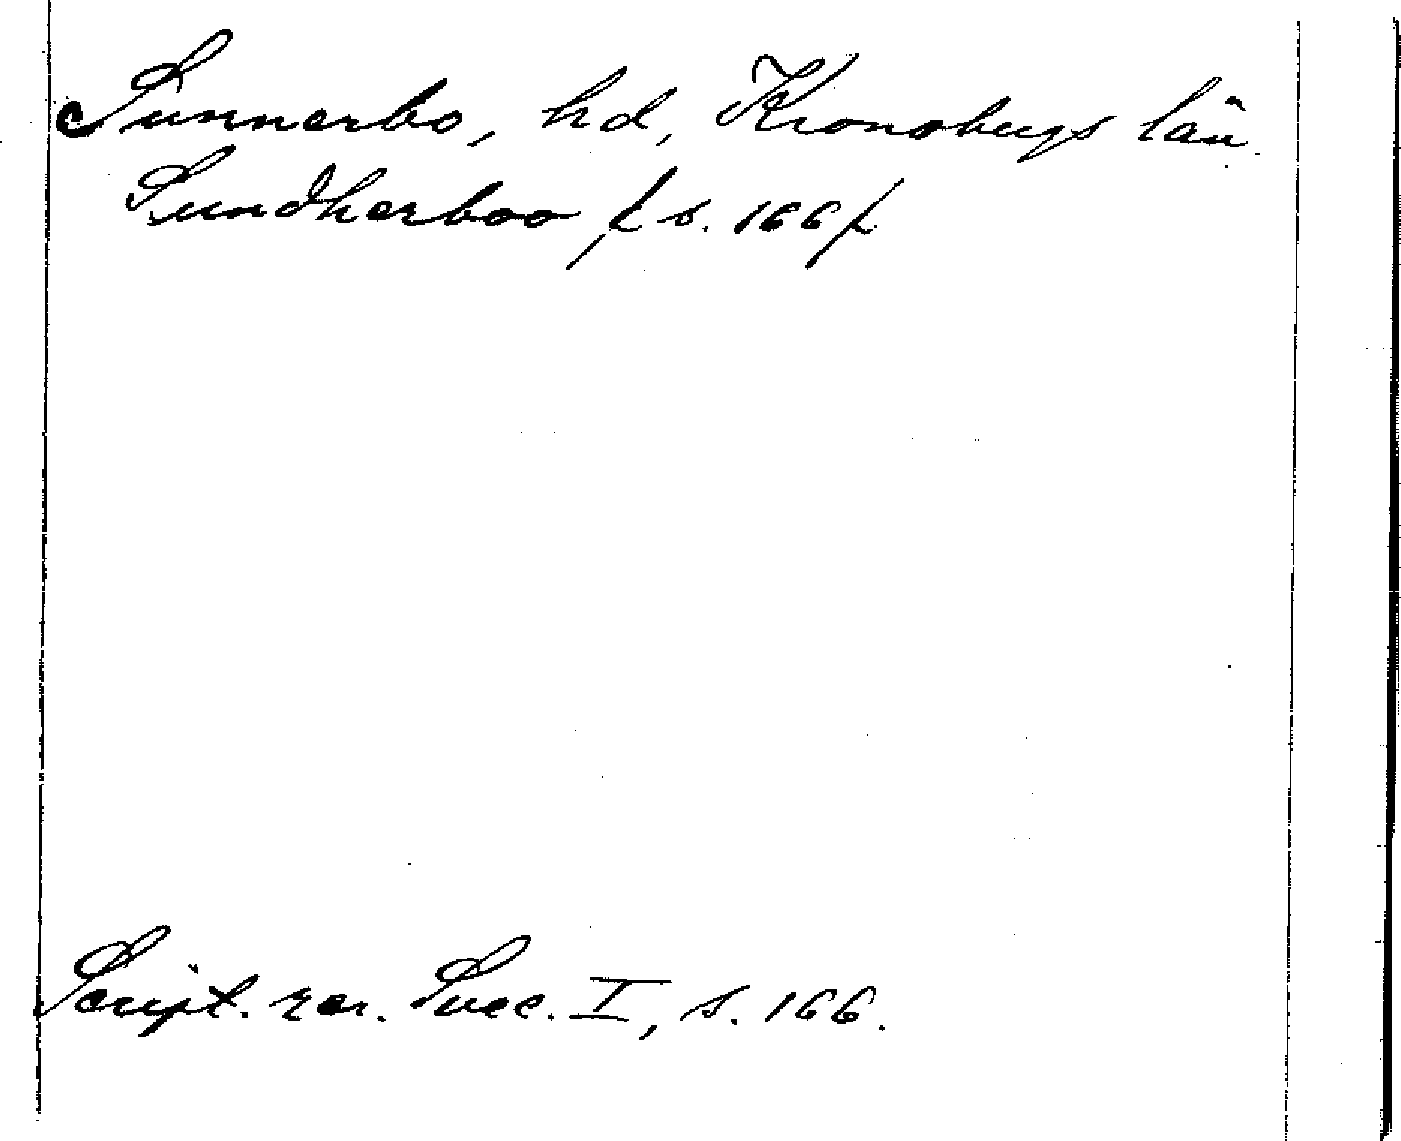 Sunnerbo, hd, Kronobergs län.
Sundherboo, /: s. 166 /:
Script. rer. Suec. I, s. 166.